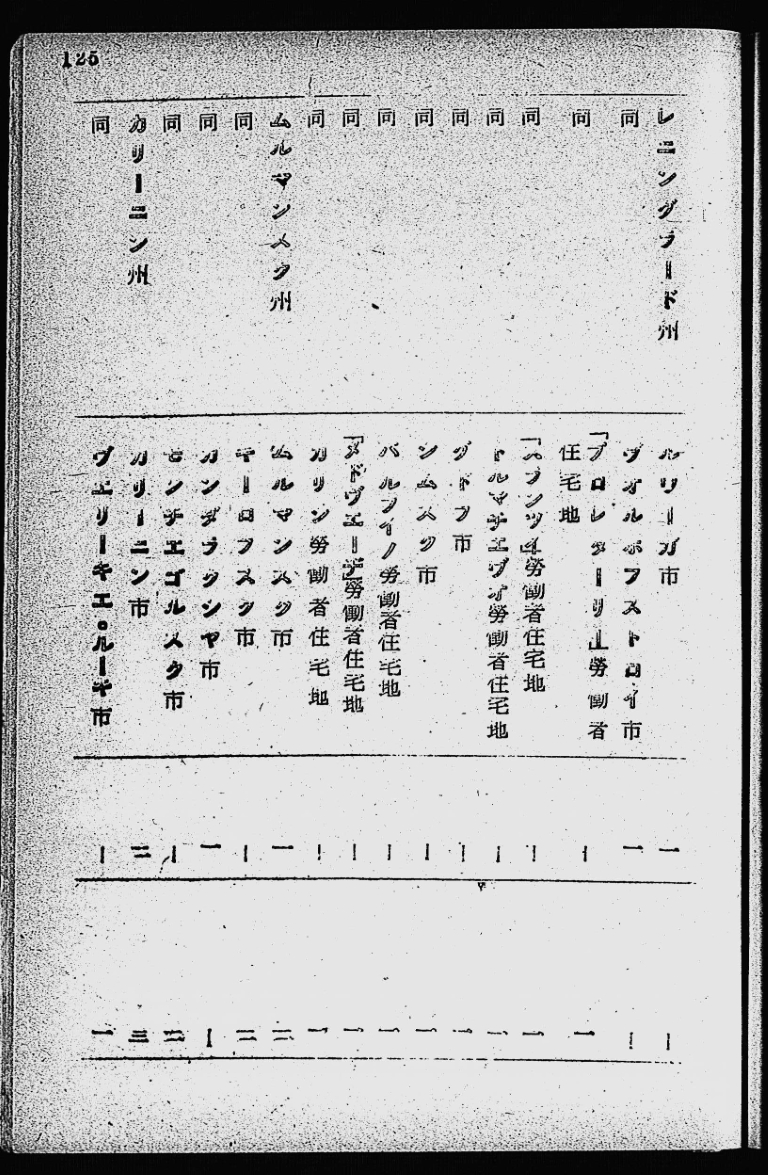 125
レニングラード州 ルリーガ市 一 ｜
同 ヴオルホフストロイ市 一 ｜
同 「プロレターリー」勞働者住宅地 ｜ 一
同 「スランツイ」勞働者住宅地 ｜ 一
同 トルマチエヴオ勞働者住宅地 ｜ 一
同 グドフ市 ｜ 一
同 ンムスク市 ｜ 一
同 バルフイノ勞働者住宅地 ｜ 一
同 「メドヴエーヂ」勞働者住宅地 ｜ 一
同 カリン勞働者住宅地 ｜ 一
ムルマンスク州 ムルマンスク市 一 二
同 キーロフスク市 ｜ 二
同 カンダラクシヤ市 一 ｜
同 モンチエゴルスク市 ｜ 二
カリーニン州 カリーニン市 二 三
同 ヴエリーキエ。ルーキ市 ｜ 一